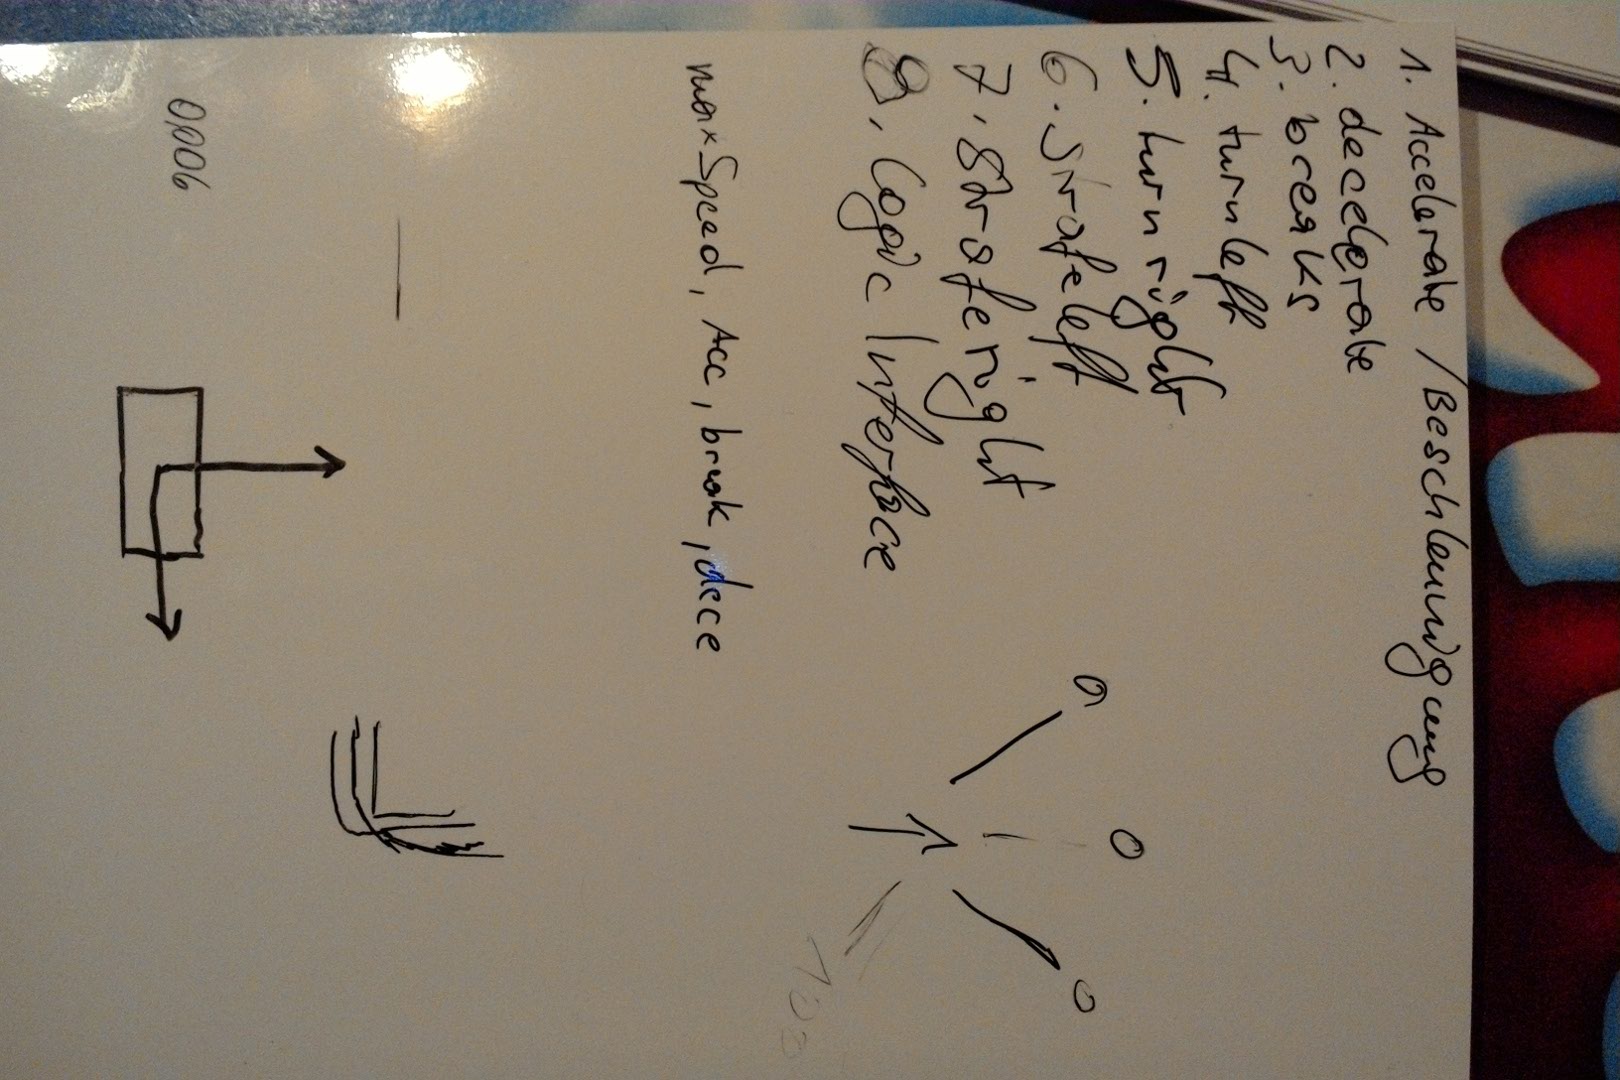 1. Accelerate / Beschleunigung
2. decelerate
3. breaks
4. turn left
5. turn right
6. Strafe left
7. Strafe right
8. Logic Interface
O
O
O
max Speed, Acc, break, dece
100
0,006